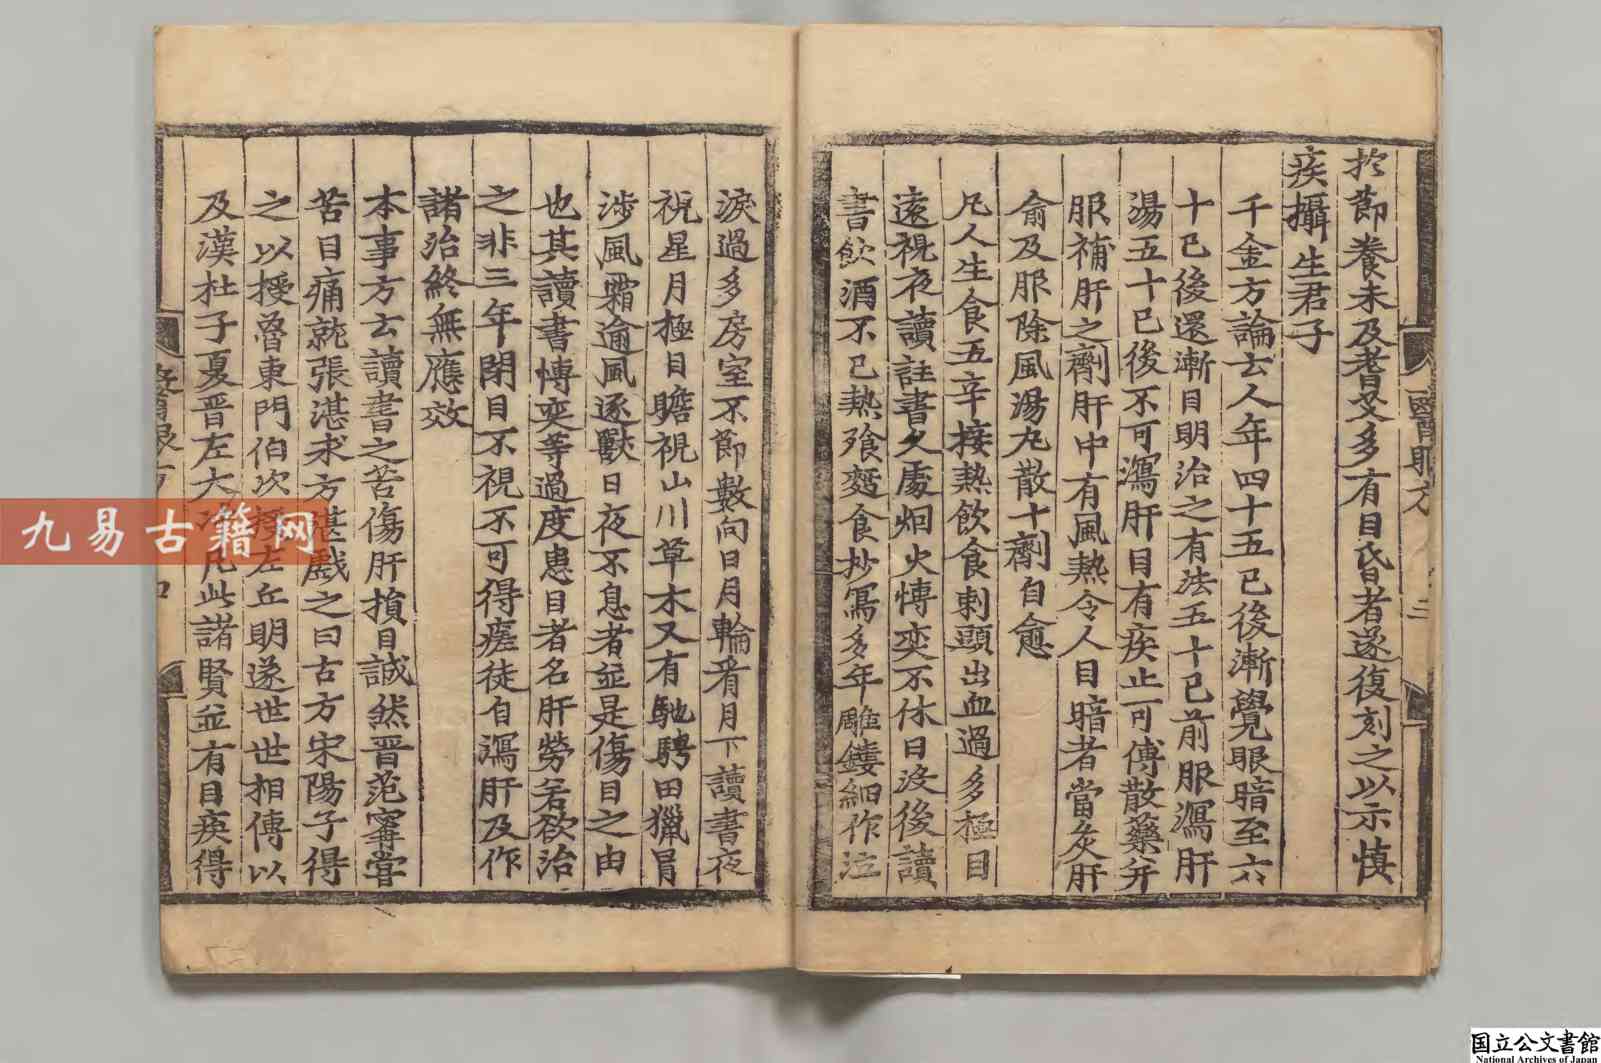 扵節養未及耆艾多有目昏者遂復刻之以示慎
疾攝生君子
千金方論云人年四十五已後漸覺眼暗至六
十已後還漸目明治之有法五十已前服瀉肝
湯五十已後不可瀉肝目有疾止可傅散藥并
服補肝之劑肝中有風熱令人目暗者當灸肝
俞及服除風湯丸散十劑自愈
凡人生食五辛接熱飲食刺頭出血過多極目
遠視夜讀註書久處烟火慱奕不休日没後讀
書飲酒不已熱飡麪食抄寫多年雕鏤細作泣
淚過多房室不節數向日月輪看月下讀書夜
視星月極目瞻視山川草木又有馳騁田獵冒
涉風霜逾風逐獸日夜不息者並是傷目之由
也其讀書慱奕等過度患目者名肝勞若欲治
之非三年閉目不視不可得瘥徒自瀉肝及作
諸治終無應效
本事方云讀書之苦傷肝損目誠然晋范甯嘗
苦目痛就張湛求方湛戲之曰古方宋陽子得
之以授魯東門伯次授左丘明遂世世相傳以
及漢杜子夏晋左太冲凡此諸賢並有目疾得
醫眼方
三
四
九易古籍网
国立公文書館
National Archives of Japan